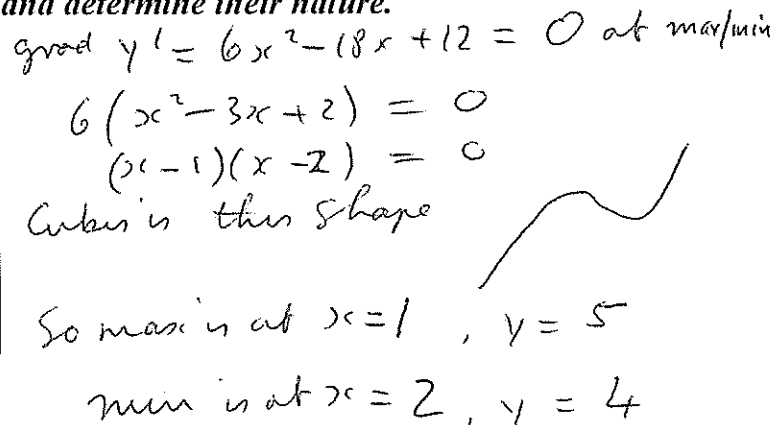 and determine their nature.
grad y' = 6x² - 18x + 12 = 0 at max/min
6(x² - 3x + 2) = 0
(x - 1)(x - 2) = 0
Cubic is this shape
So max is at x = 1, y = 5
min is at x = 2, y = 4